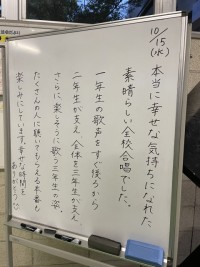 10/15(水)
本当に幸せな気持ちになれた
素晴らしい全校合唱でした。
一年生の歌声をすぐ後ろから
二年生が支え、全体を三年生が支え
さらに楽しそうに歌う三年生の姿。
たくさんの人に聴いてもらえる本番も
楽しみにしています。幸せな時間を
ありがとう